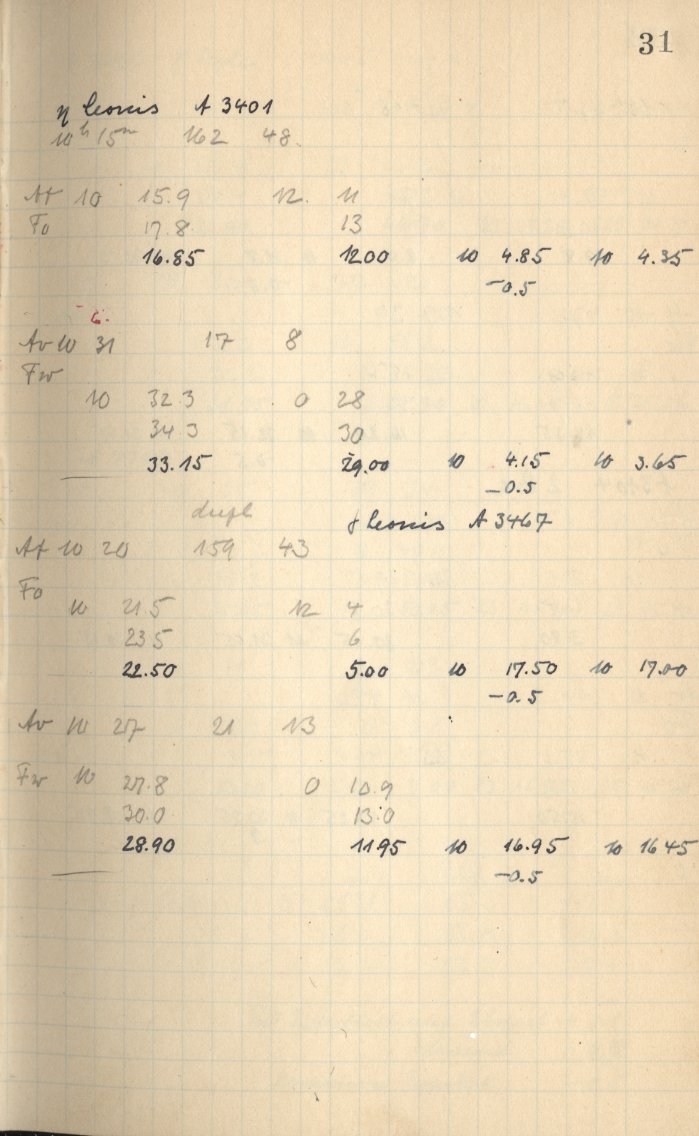 31
η Leonis A 3401
10h 15m 162 48.
Af 10 15.9 12. 11
Fo 17.8 13
16.85 12.00 10 4.85 10 4.35
-0.5
-6.
Av 10 31 17 8
Fw
10 32.3 0 28
34.3 30
33.15 29.00 10 4.15 10 3.65
-0.5
dupl γ Leonis A 3467
Af 10 20 159 43
Fo
10 21.5 12 4
23.5 6
22.50 5.00 10 17.50 10 17.00
-0.5
Av 10 27 21 13
Fw 10 27.8 0 10.9
30.0 13.0
28.90 11.95 10 16.95 10 16.45
-0.5